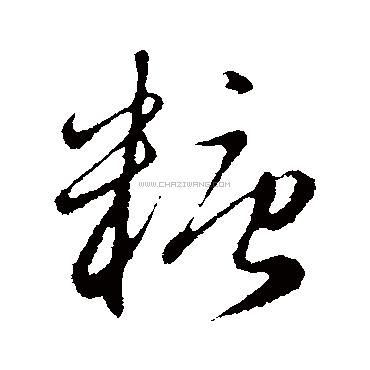 糖
WWW.CHAZIWANG.COM